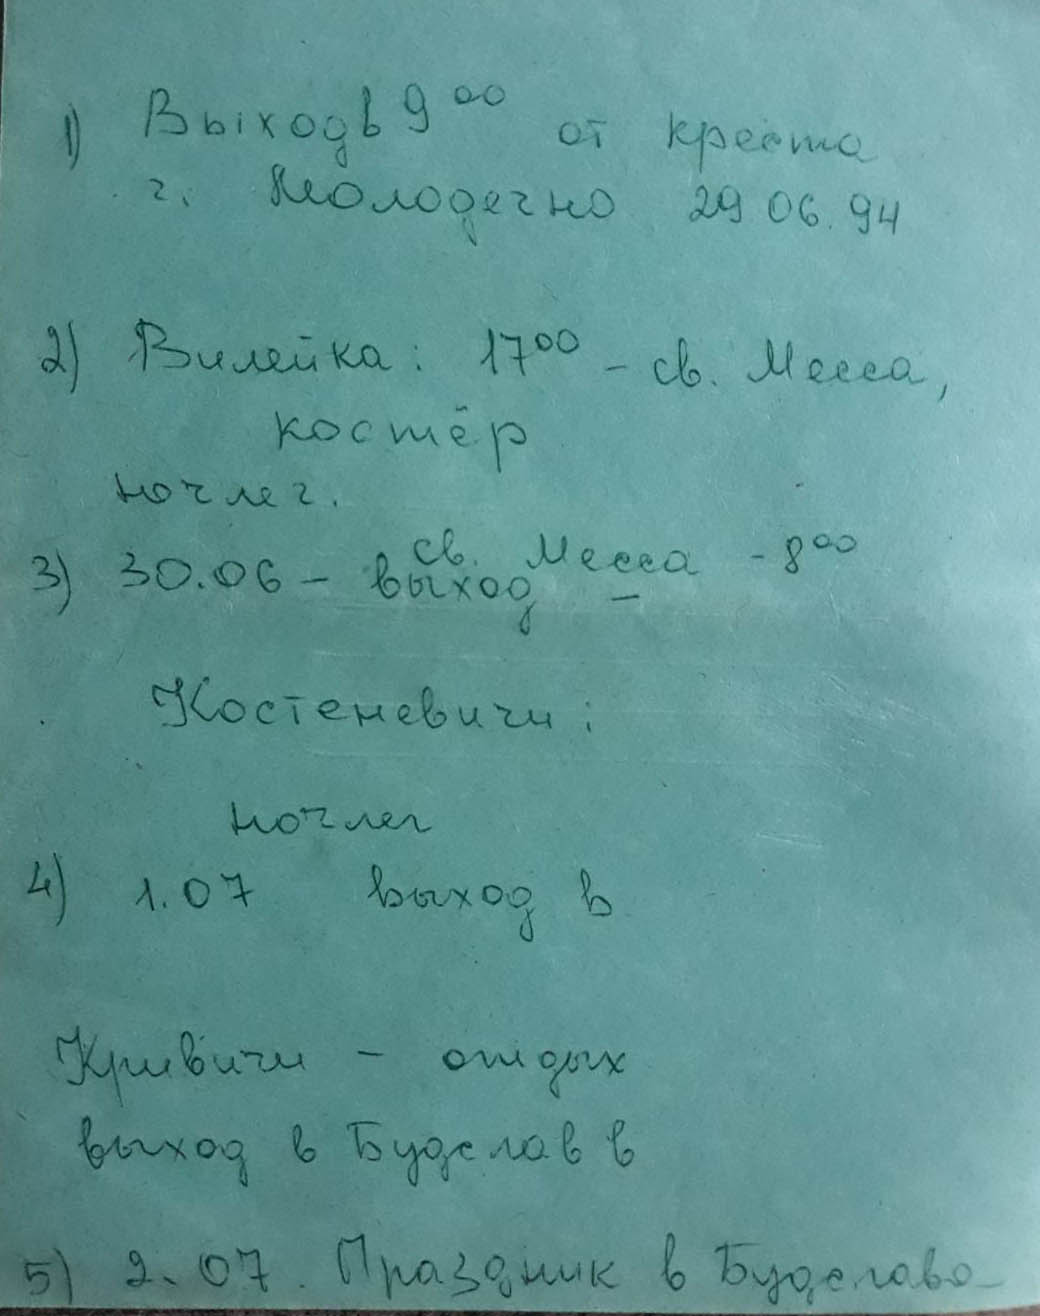 1) Выход в 9⁰⁰ от креста
г. Молодечно 29 06. 94
2) Вилейка: 17⁰⁰ - св. Месса,
костёр
ночлег.
св. Месса - 8⁰⁰
3) 30.06 - выход -
Костеневичи:
ночлег
4) 1.07 выход в
Кривичи - отдых
выход в Будслав в
5) 2.07. Праздник в Будславо-